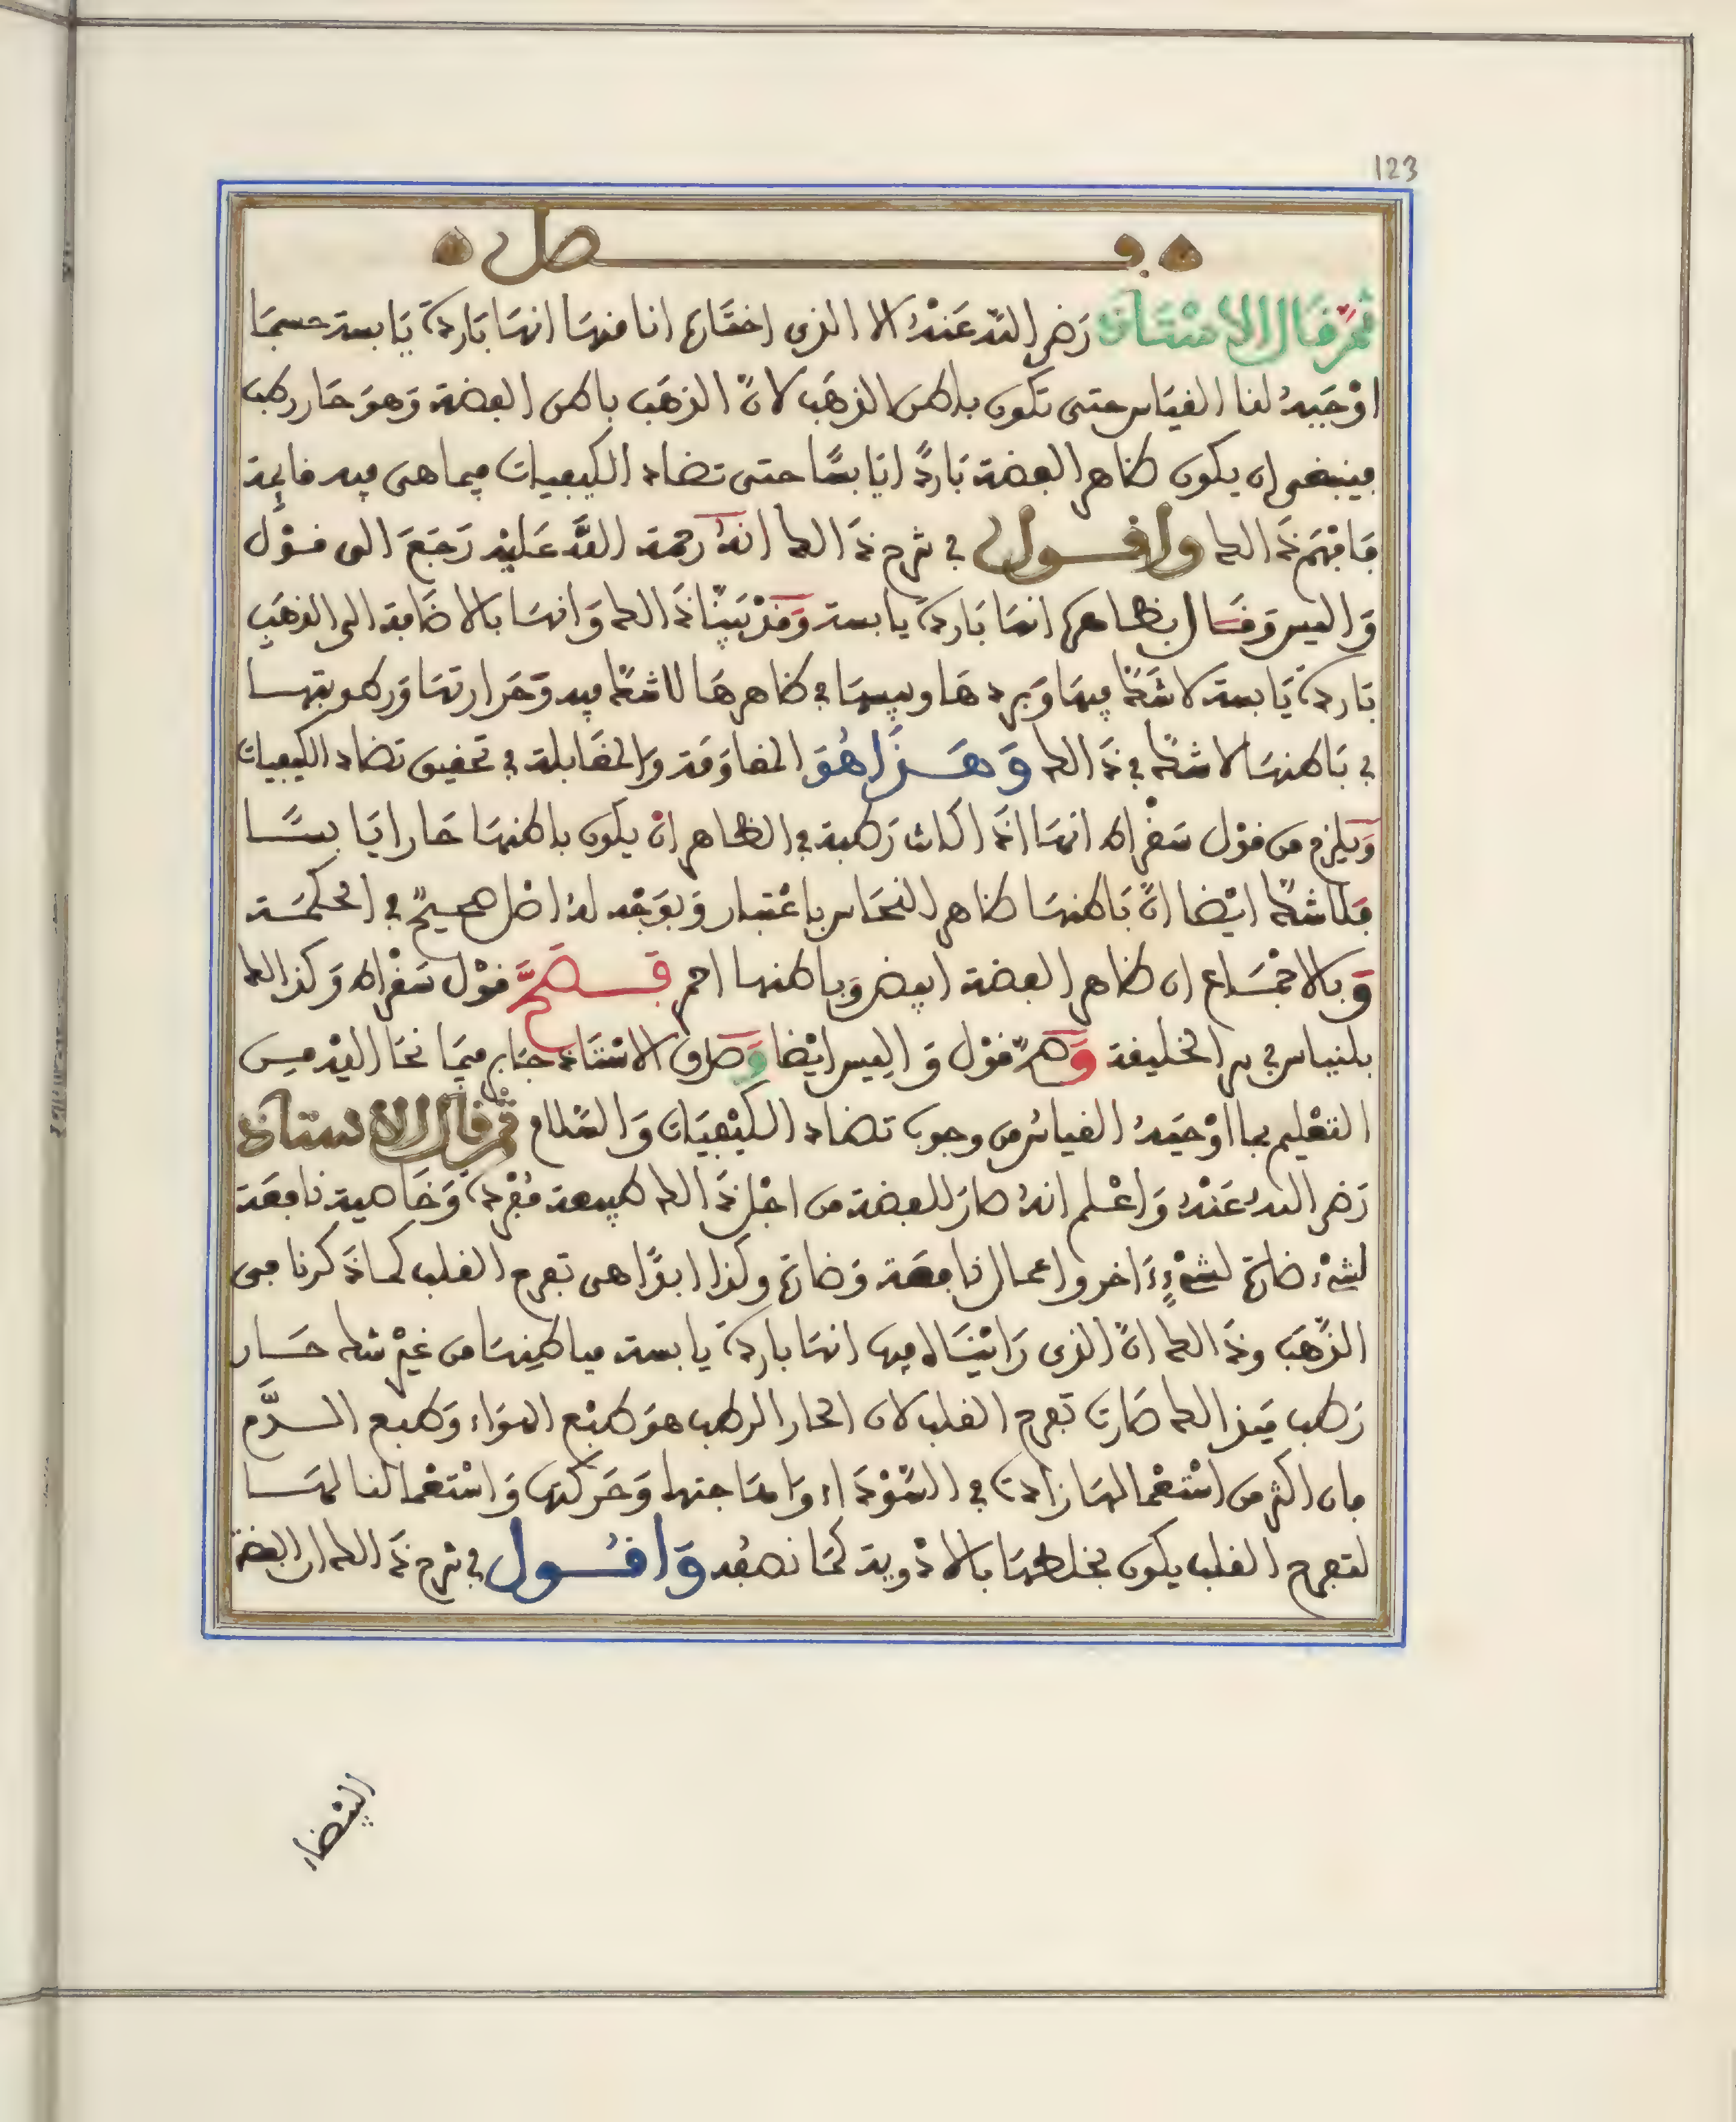 123
فصل
ثم قال الاستاذ رضي الله عنه الا الذي اختاره انا منها انها باردة يابسة حسبما
اوجبه لنا القياس حتى تكون باطن الذهب لان الذهب باطن الفضة وهو حار رطب
فينبغي ان يكون ظاهر الفضة باردا يابسا حتى تضاد الكيفيات فيما هي فيه قائمة
فافهم ذالك واقول في شرح ذالك انه رحمة الله عليه رجع الى قول
واليس وقال بظاهرها انها باردة يابسة وقد بينا ذالك وانها بالاضافة الى الذهب
باردة يابسة لا شك فيها وبردها ويبسها في ظاهرها لا شك فيه وحرارتها ورطوبتها
في باطنها لا شك في ذالك وهذا هو المقاومة والمقابلة في تحقيق تضاد الكيفيات
ويلزم من قول سقراط انها اذا كانت رطبة في الظاهر ان يكون باطنها حارا يابسا
فلا شك ايضا ان باطنها ظاهر النحاس باعتبار وبوجه له اصل صحيح في الحكمة
وبالاجماع ان ظاهر الفضة ابيض وباطنها احمر فصح قول سقراط وكذالك
بلنياس في سر الخليفة وصح قول واليس ايضا وصدق الاستاذ جابر فيما نحا اليه من
التعليم بما اوجبه القياس من وجوب تضاد الكيفيات والسلام ثم قال الاستاذ
رضي الله عنه واعلم انه صار للفضة من اجل ذالك طبيعة مفردة وخاصية نافعة
لشيء ضارة لشيء ءاخر واعمال نافعة وضارة وكذا ابدا هي تفرح القلب كما ذكرنا في
الذهب وذالك ان الذي رايناه فيها انها باردة يابسة فباطنها من غير شك حار
رطب فبذالك صارت تفرح القلب لان الحار الرطب هو طبع الهواء وطبع الدم
فان اكثر من استعمالها زادت في السوداء وامتاجتها وحركتها واستعمالنا لها
لتفرح القلب يكون بخلطها بالادوية كما نصفه واقول في شرح ذالك ان الفضة
البيضاء